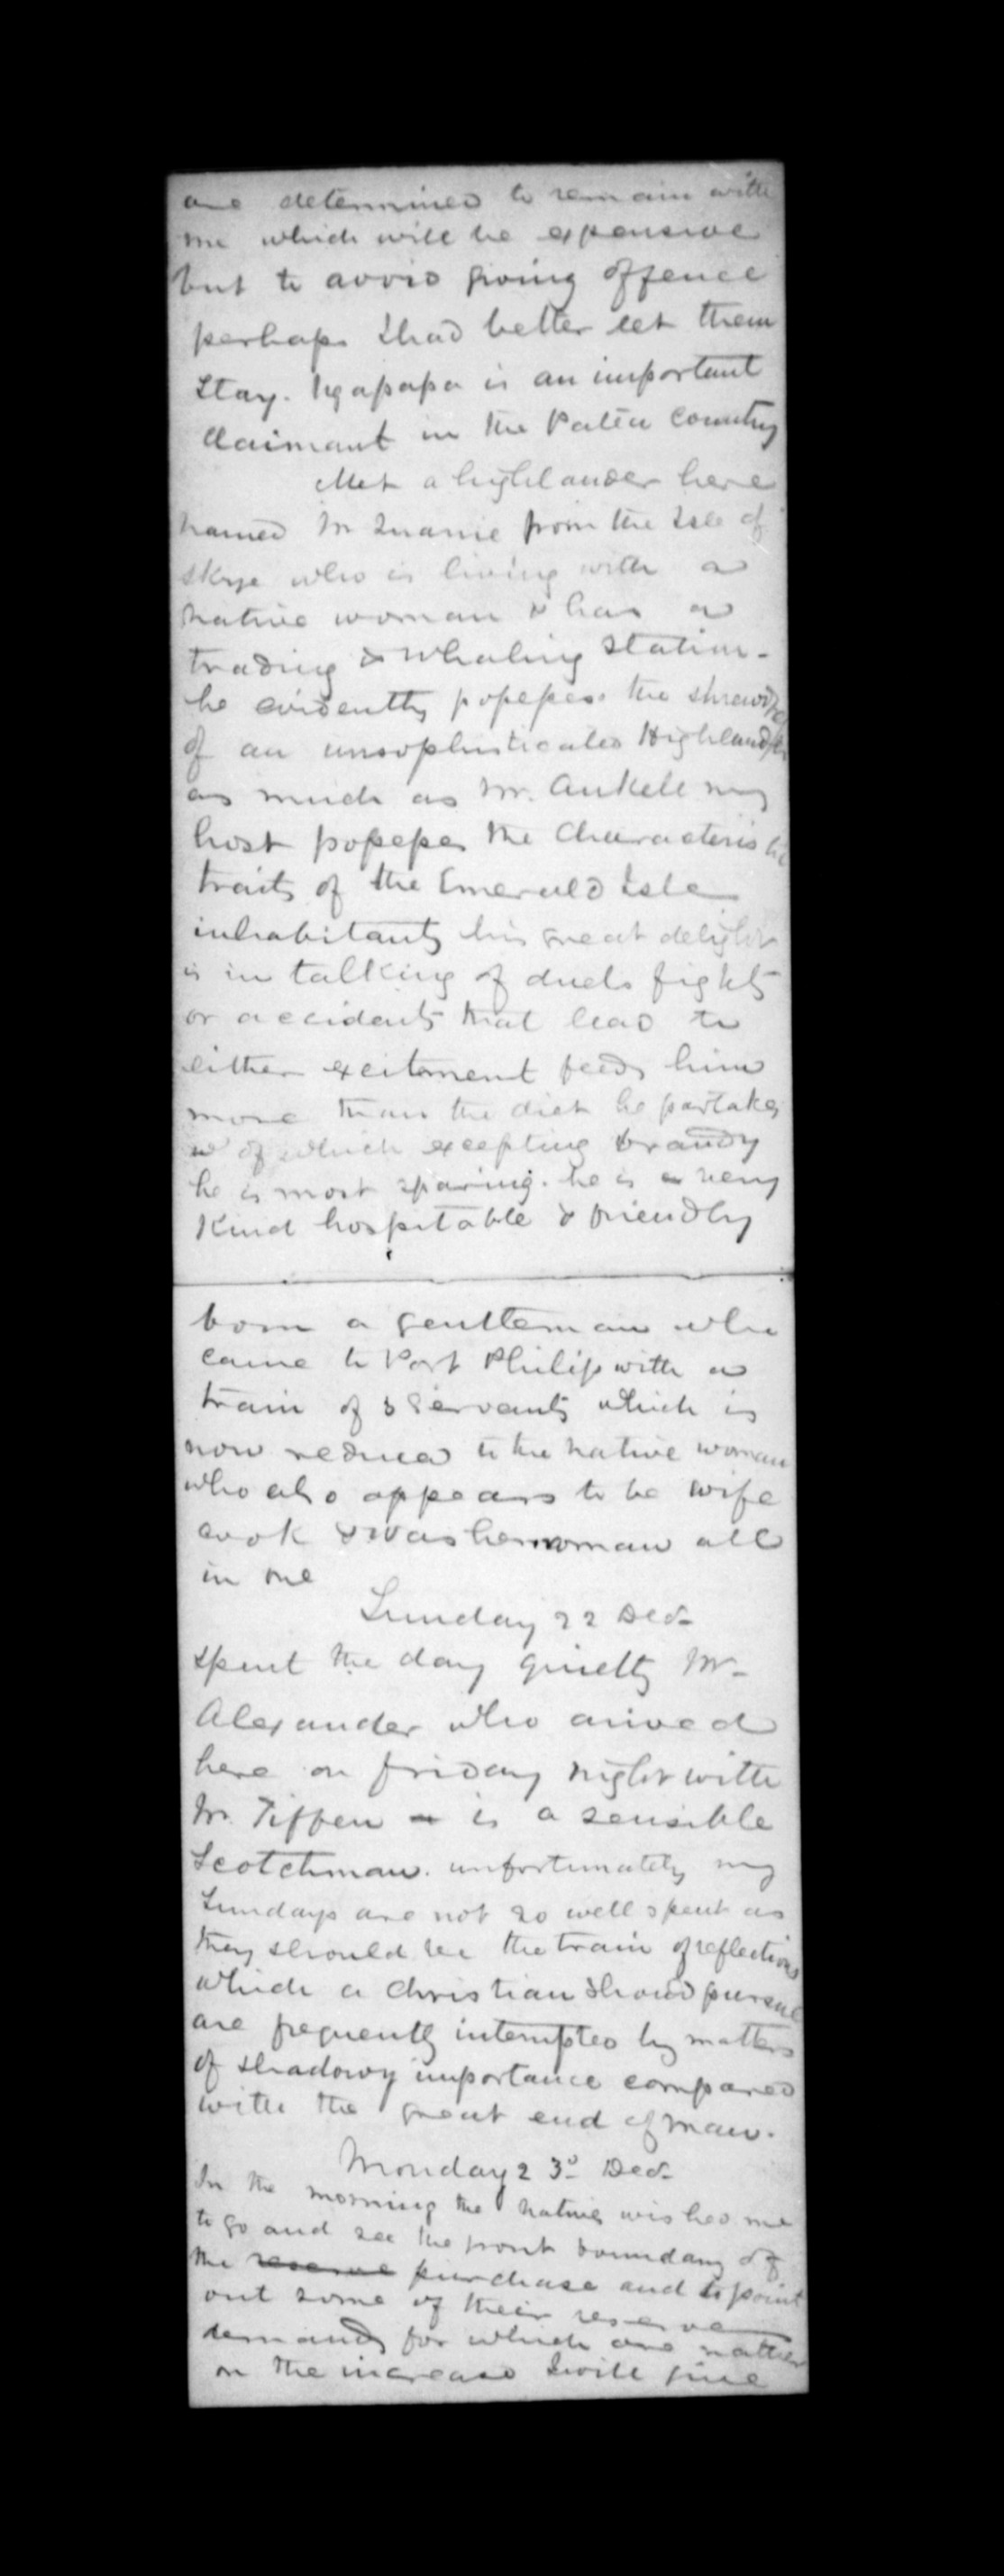 are determined to remain with
me which will be expensive
but to avoid giving offence
perhaps I had better let them
stay. Ngapapa is an important
claimant in the Patea Country
Met a highlander here
named from the Isle of
Skye who is living with a
native woman & has a
trading & Whaling station -
he evidently possesses the
of an unsophisticated Highlander
as much as Mr. my
host possesses the Characteristic
traits of the Emerald Isle
inhabitants his great delight
is in talking of duels fights
or accidents that lead to
either excitement feeds him
more than the diet he partakes
of which excepting brandy
he is most sparing. he is a very
Kind hospitable & friendly
born a gentleman who
came to Port Philip with a
train of 3 Servants which is
now reduced to the native woman
who also appears to be wife
cook & Washerwoman all
in one
Sunday 22 Decr
spent the day quietly Mr
Alexander who arived
here on friday night with
Mr. Tiffen is a sensible
Scotchman. unfortunately my
Sundays are not so well spent as
they should be the train of reflections
which a Christian should pursue
are frequently interupted by matters
of shadowy importance compared
with the great end of man.
Monday 23d Decr
In the morning the natives wished me
to go and see the front boundary of
the reserve purchase and to point
out some of their reserve
demands for which are rather
on the increase I will give